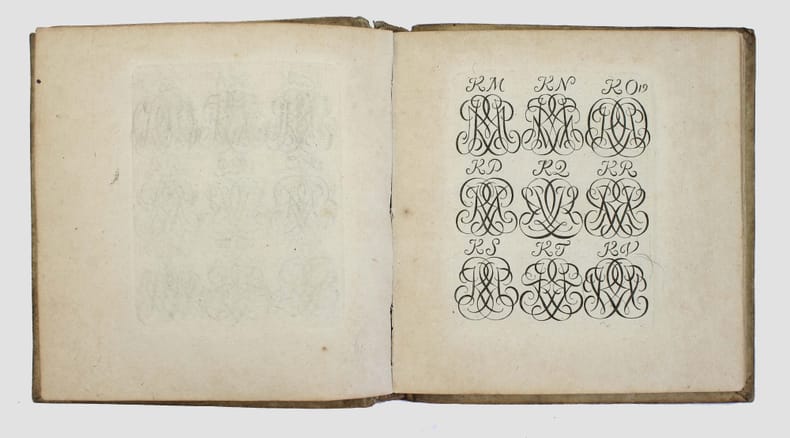 KM KN KO 19
KP KQ KR
KS KT KV